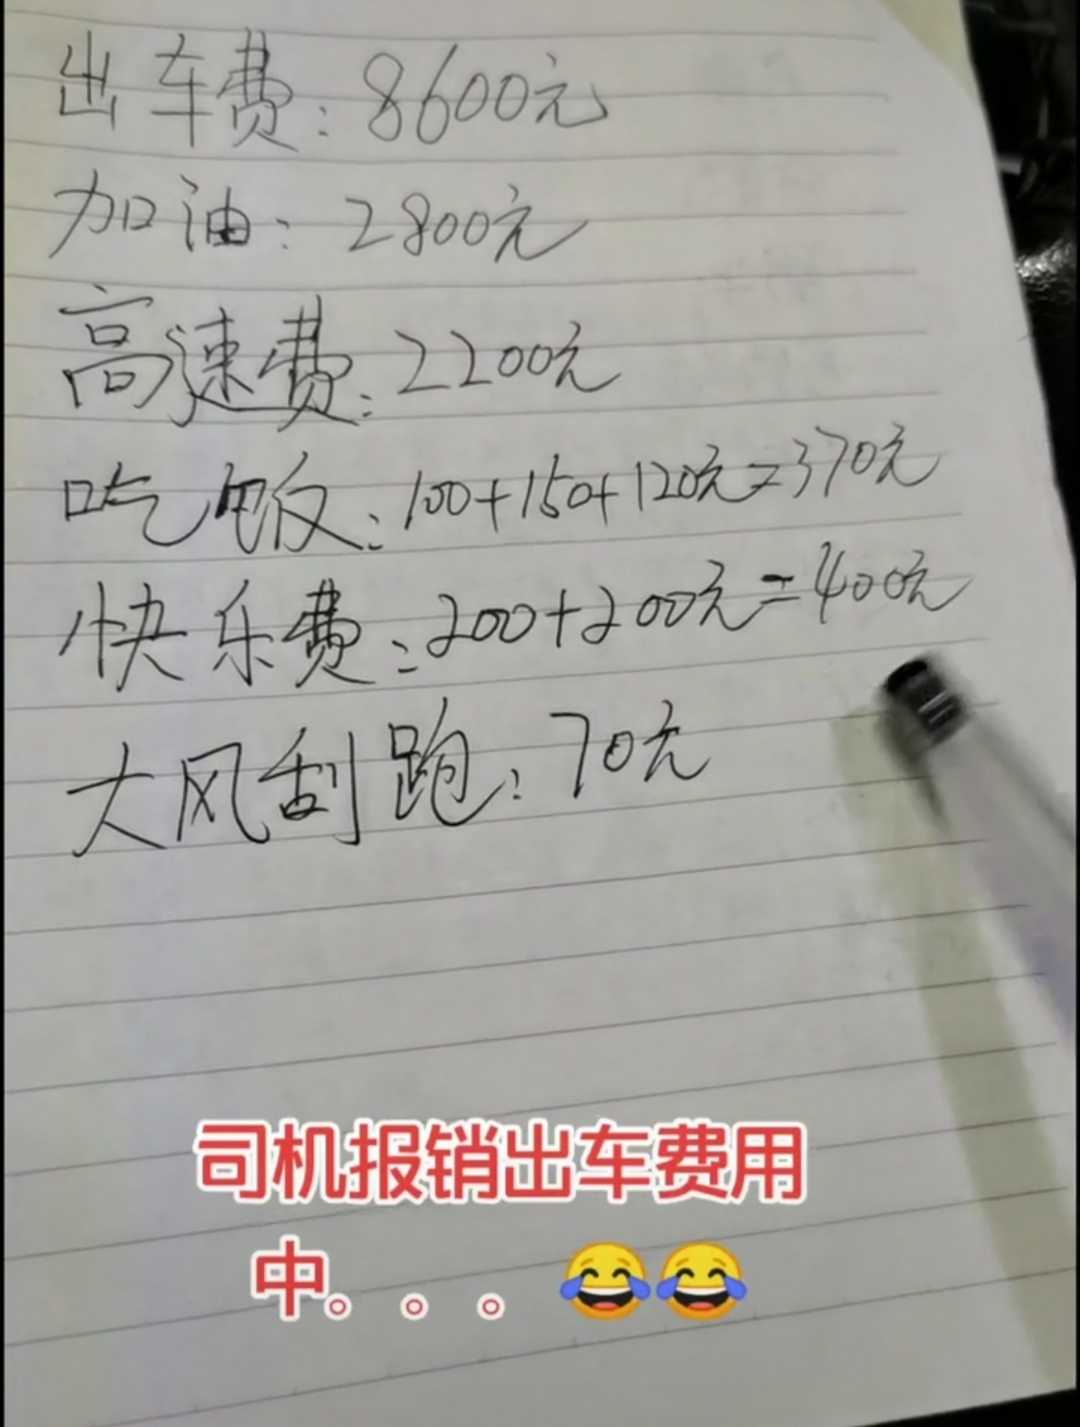 出车费:8600元
加油:2800元
高速费:2200元
吃饭:100+150+120元=370元
快乐费:200+200元=400元
大风刮跑:70元
司机报销出车费用
中。。。😂😂